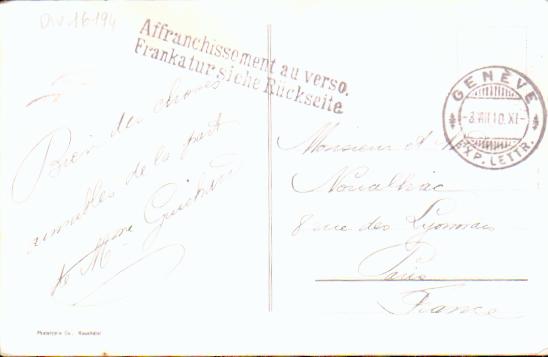 Div 16194
Affranchissement au verso.
Frankatur siehe Rückseite
GENÈVE
EXP. LETTR.
-3.VIII.10.XI-
Bien des choses
aimables de la part
de Mme Guichard
Monsieur et M
Noualhac
8 rue des Lyonnais
Paris
France
Phototypie Co., Neuchâtel